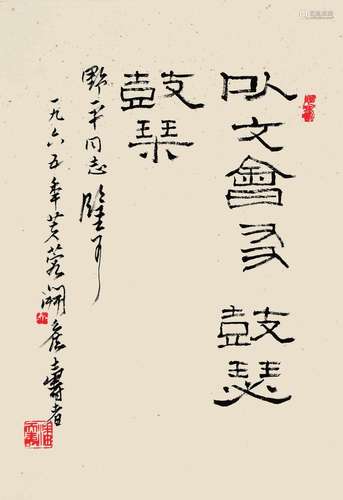 以文會友 鼓瑟
鼓琹
野平同志
一九六五年芙蓉
壽者